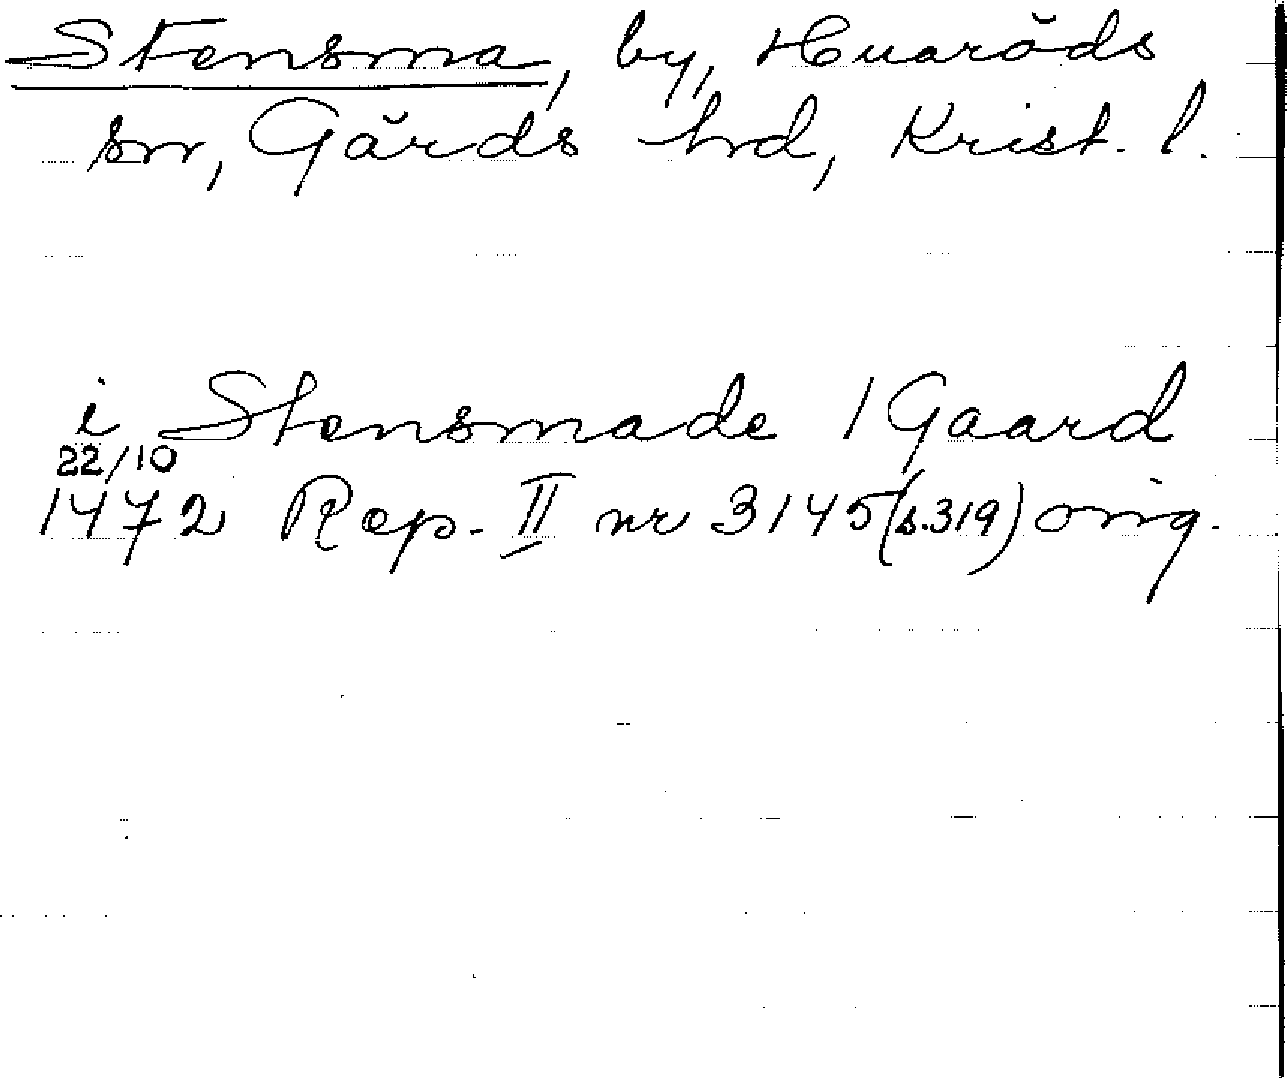 Stensma, by, Huaröds
sn, Gärds hd, Krist. l.
i Stensmade 1 Gaard
22/10
1472 Rep. II nr 3145 (s. 319) orig.